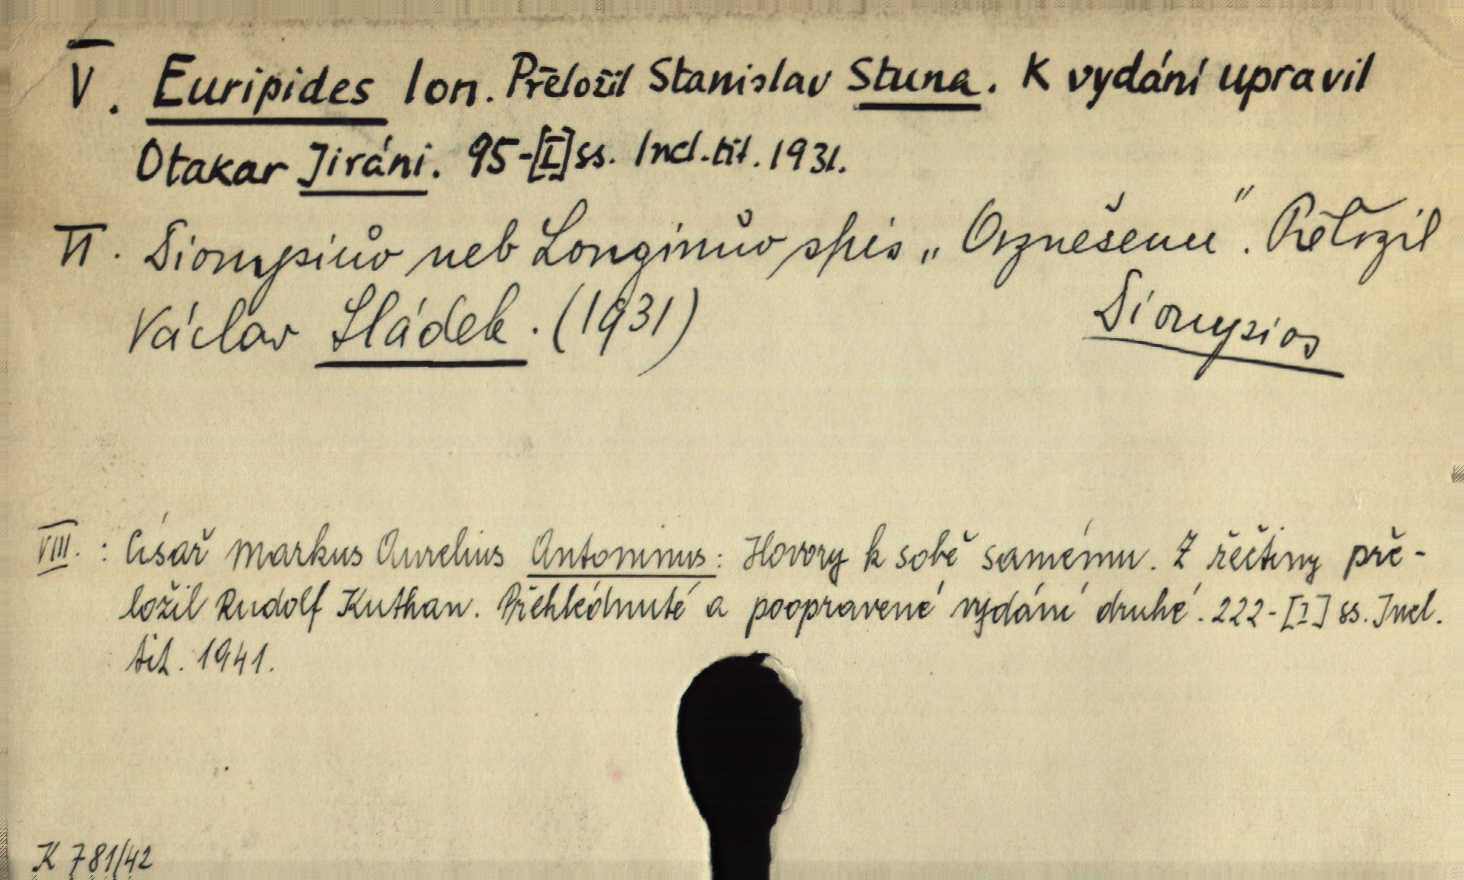 V. Euripides Ion. Přeložil Stanislav Stuna. K vydání upravil
Otakar Jiráni. 95-[I] ss. Incl. tit. 1931.
VI. Dionysiův neb Longinův spis „O vznešenu“. Přeložil
Václav Sládek. (1931)
Dionysios
VIII.: Císař Markus Aurelius Antoninus: Hovory k sobě samému. Z řečtiny pře-
ložil Rudolf Kuthan. Přehlédnuté a poopravené vydání druhé. 222-[I] ss. Incl.
tit. 1941.
K 781/42